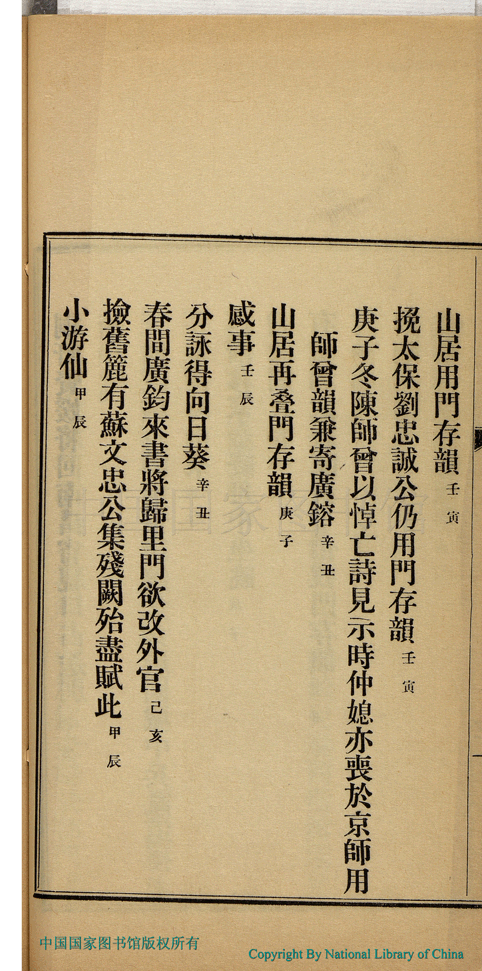 山居用門存韻 壬寅
挽太保劉忠誠公仍用門存韻 壬寅
庚子冬陳師曾以悼亡詩見示時仲媳亦喪於京師用
師曾韻兼寄廣鎔 辛丑
山居再叠門存韻 庚子
感事 壬辰
分詠得向日葵 辛丑
春間廣鈞來書將歸里門欲改外官 己亥
撿舊簏有蘇文忠公集殘闕殆盡賦此 甲辰
小游仙 甲辰
中国国家图书馆版权所有
Copyright By National Library of China